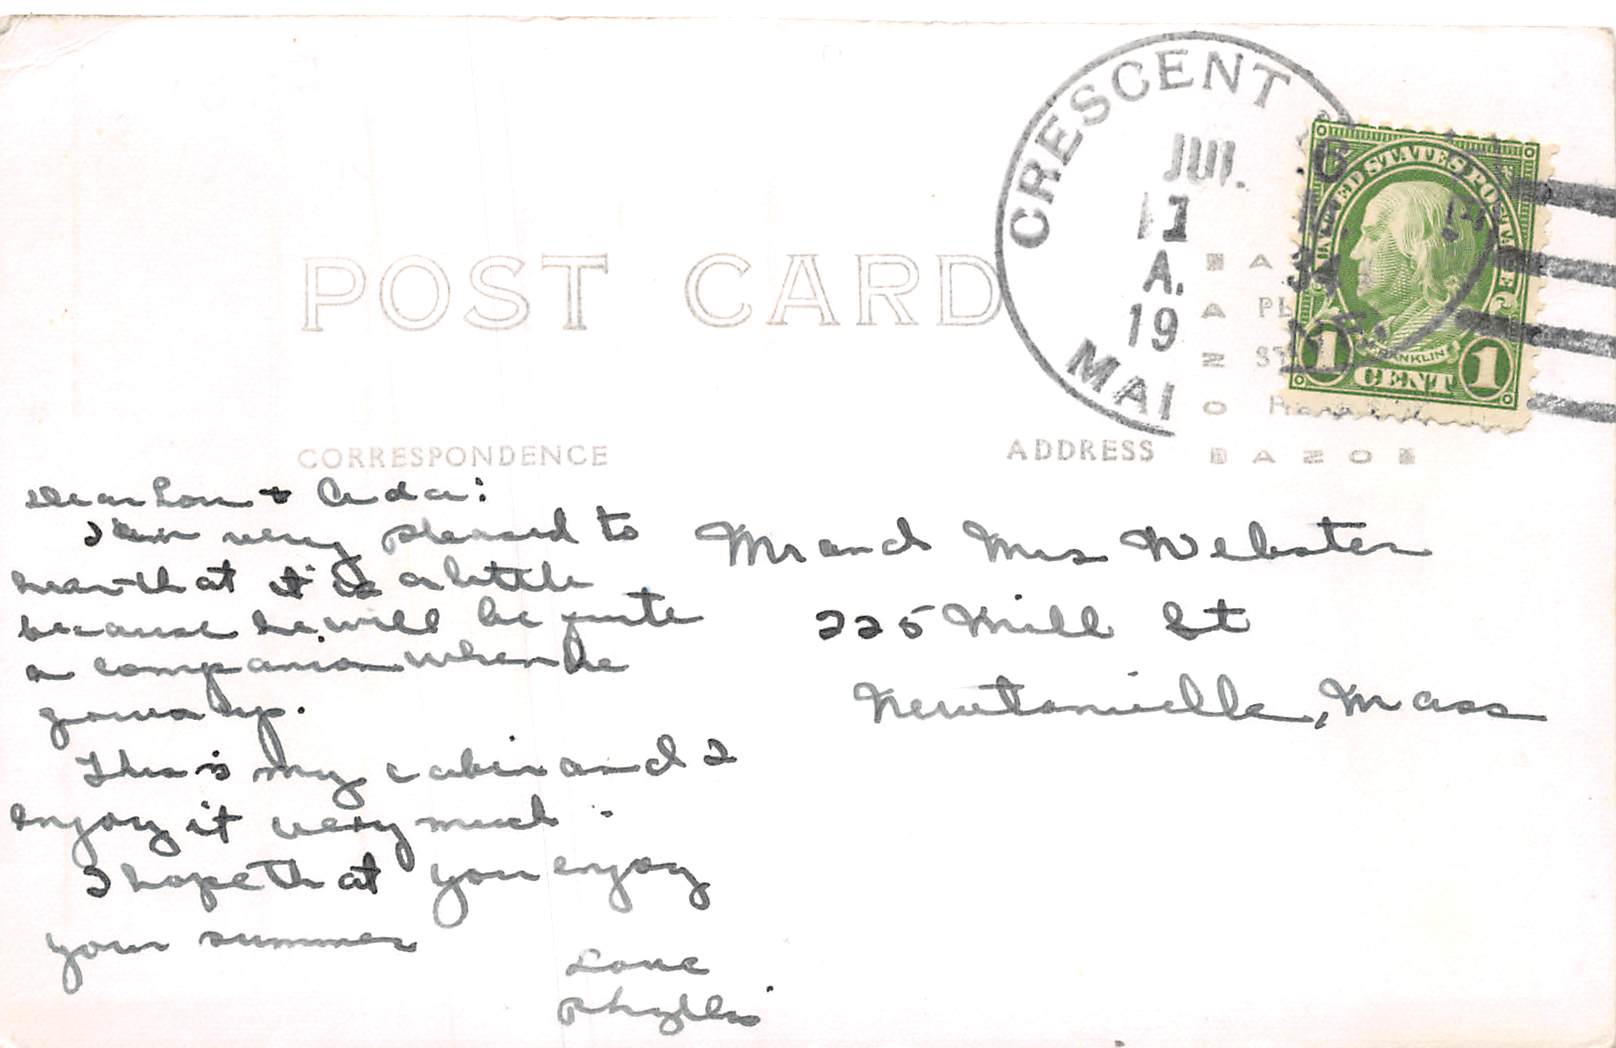 POST CARD
CRESCENT
JUL 6
11
A.
19 34
MAINE.
UNITED STATES POSTAGE
FRANKLIN
1 CENT 1
AZO
PLACE
STAMP
HERE
AZO
CORRESPONDENCE
ADDRESS
Dear Lon + Ada:
I am very pleased to
hear that it is a little
because he will be quite
a companion when he
grows up.
This is my cabin and I
enjoy it very much.
I hope that you enjoy
your summer
Love
Phyllis
Mr and Mrs Webster
225 Mill St
Newtonville, Mass